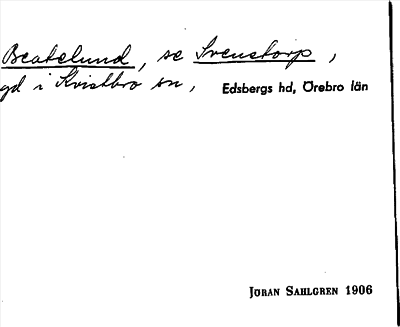 Beatelund, se Svenstorp,
gd i Kvistbro sn, Edsbergs hd, Örebro län
JÖRAN SAHLGREN 1906